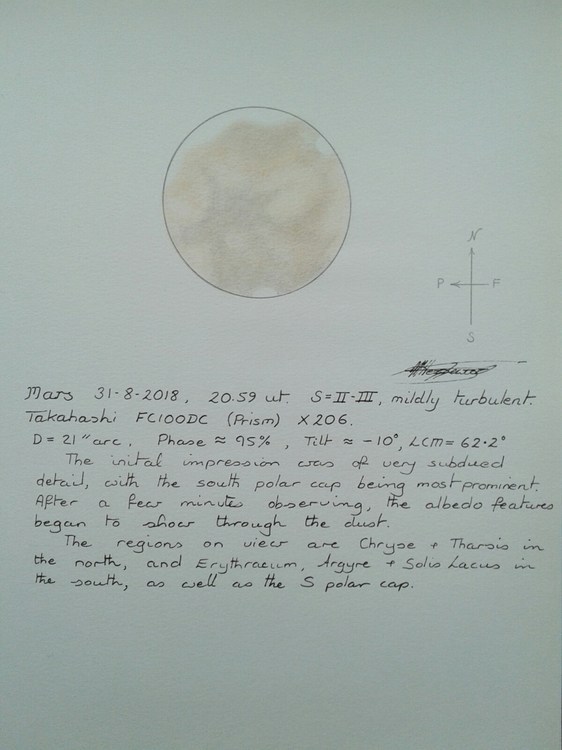 N
P F
S
Mars 31-8-2018, 20.59 ut. S=II-III, mildly turbulent.
Takahashi FC100DC (Prism) X206.
D = 21" arc, Phase ≈ 95%, Tilt ≈ -10°, LCM= 62.2°
The inital impression was of very subdued
detail, with the south polar cap being most prominent.
After a few minutes observing, the albedo features
began to show through the dust.
The regions on view are Chryse + Tharsis in
the north, and Erythraeum, Argyre + Solis Lacus in
the south, as well as the S polar cap.